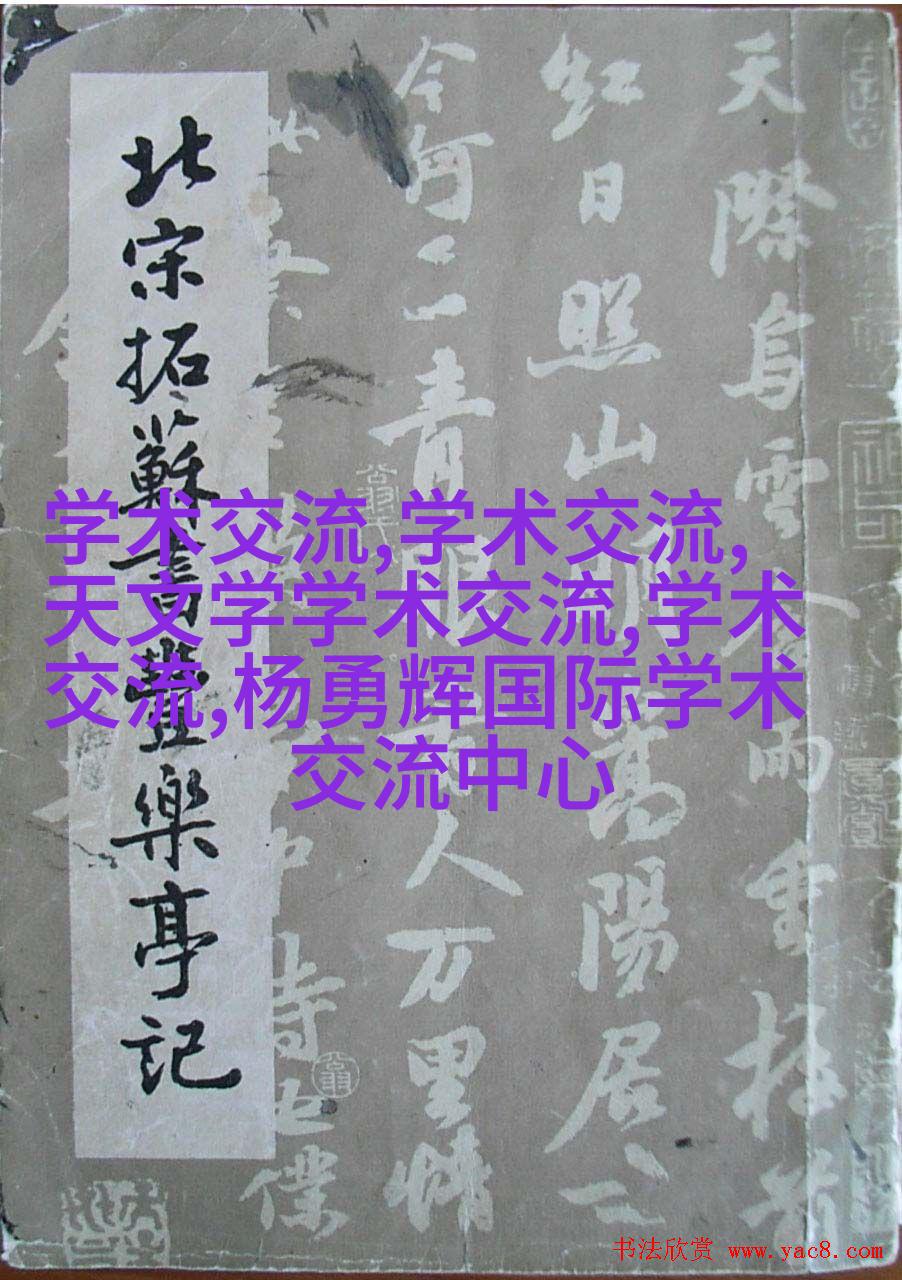 天際烏雲含雨重樓前
紅日照山明嵩陽居士
今何在青眼看人万里情
詩也僕
北宋拓蘇書豐樂亭記
学术交流,学术交流,
天文学学术交流,学术
交流,杨勇辉国际学术
交流中心
书法欣赏 www.yac8.com